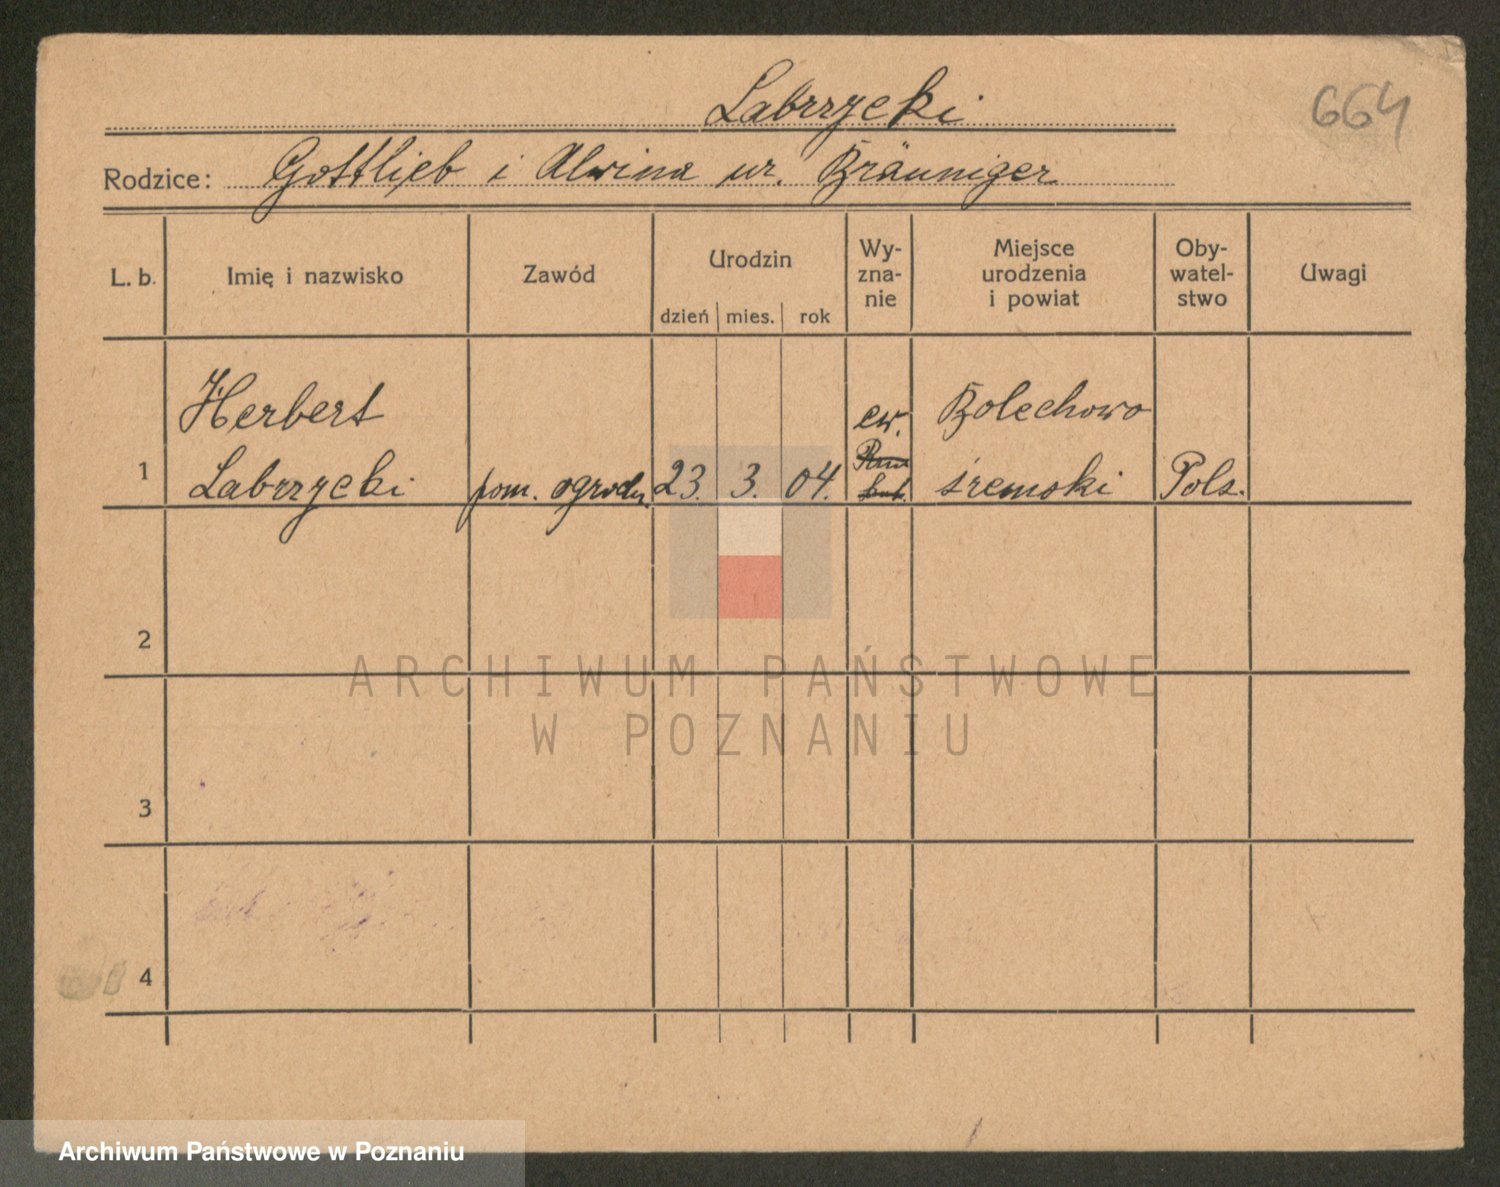 Labrzycki
664
Rodzice: Gottlieb i Alwina ur. Bräuniger
L. b. Imię i nazwisko Zawód Urodzin Wy- Miejsce Oby- Uwagi
zna- urodzenia watel-
nie i powiat stwo
dzień mies. rok
Herbert ew. Bolechowo
1 Labrzycki pom. ogrodn. 23. 3. 04. śremski Pols.
2
3
4
ARCHIWUM PAŃSTWOWE
W POZNANIU
Archiwum Państwowe w Poznaniu